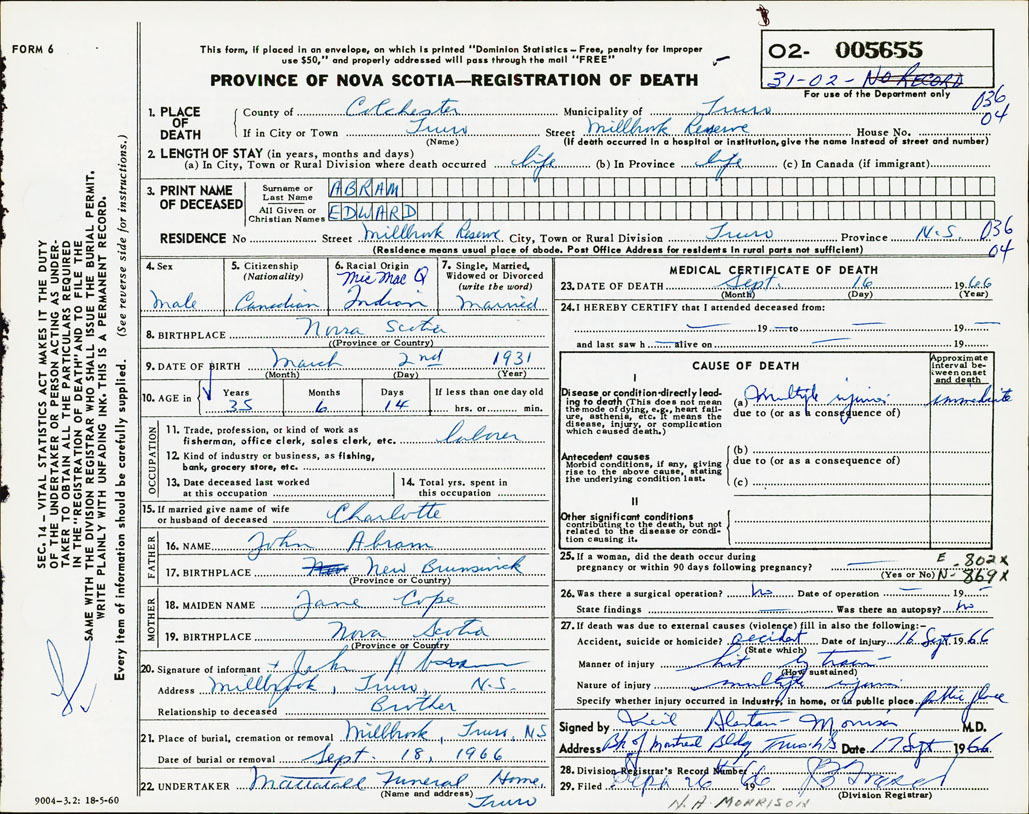 FORM 6
This form, if placed in an envelope, on which is printed "Dominion Statistics – Free, penalty for improper
use $50," and properly addressed will pass through the mail "FREE"
PROVINCE OF NOVA SCOTIA—REGISTRATION OF DEATH
O2- 005655
31-02- No RECORD
For use of the Department only
036
04
1. PLACE OF DEATH
County of Colchester Municipality of Truro
If in City or Town Truro Street Millbrook Reserve House No.
(Name) (If death occurred in a hospital or institution, give the name instead of street and number)
2. LENGTH OF STAY (in years, months and days)
(a) In City, Town or Rural Division where death occurred life (b) In Province life (c) In Canada (if immigrant)
3. PRINT NAME OF DECEASED
Surname or Last Name ABRAM
All Given or Christian Names EDWARD
RESIDENCE No Street Millbrook Reserve City, Town or Rural Division Truro Province N.S.
036
04
(Residence means usual place of abode. Post Office Address for residents in rural parts not sufficient)
4. Sex
Male
5. Citizenship
(Nationality)
Canadian
6. Racial Origin
Mic Mac
Indian
7. Single, Married, Widowed or Divorced
(write the word)
Married
8. BIRTHPLACE Nova Scotia
(Province or Country)
9. DATE OF BIRTH March 2nd 1931
(Month) (Day) (Year)
10. AGE in Years Months Days If less than one day old
35 6 14 hrs. or min.
OCCUPATION
11. Trade, profession, or kind of work as
fisherman, office clerk, sales clerk, etc. laborer
12. Kind of industry or business, as fishing,
bank, grocery store, etc.
13. Date deceased last worked
at this occupation
14. Total yrs. spent in
this occupation
15. If married give name of wife
or husband of deceased Charlotte
FATHER
16. NAME John Abram
17. BIRTHPLACE New Brunswick
(Province or Country)
MOTHER
18. MAIDEN NAME Jane Cope
19. BIRTHPLACE Nova Scotia
(Province or Country
20. Signature of informant + John Abram
Address Millbrook, Truro, N.S.
Relationship to deceased Brother
21. Place of burial, cremation or removal Millbrook, Truro, NS
Date of burial or removal Sept. 18, 1966
22. UNDERTAKER Mattatall Funeral Home,
(Name and address)
Truro
MEDICAL CERTIFICATE OF DEATH
23. DATE OF DEATH Sept. 16 1966
(Month) (Day) (Year)
24. I HEREBY CERTIFY that I attended deceased from:
— 19 — to — 19 —
and last saw h — alive on — 19
CAUSE OF DEATH
Approximate interval between onset and death
I
Disease or condition directly leading to death (This does not mean the mode of dying, e.g., heart failure, asthenia, etc. It means the disease, injury, or complication which caused death.)
(a) Multiple injuries immediate
due to (or as a consequence of)
Antecedent causes
Morbid conditions, if any, giving rise to the above cause, stating the underlying condition last.
(b)
due to (or as a consequence of)
(c)
II
Other significant conditions
contributing to the death, but not related to the disease or condition causing it.
25. If a woman, did the death occur during
pregnancy or within 90 days following pregnancy? —
(Yes or No)
E - 802X
N - 869X
26. Was there a surgical operation? No Date of operation — 19 —
State findings — Was there an autopsy? No
27. If death was due to external causes (violence) fill in also the following:–
Accident, suicide or homicide? accident Date of injury 16 Sept. 1966
(State which)
Manner of injury hit by train
(How sustained)
Nature of injury multiple injuries
Specify whether injury occurred in industry, in home, or in public place public place
Signed by Neil Alastair Morrison M.D.
Address Bk of Montreal Bldg, Truro NS Date 17 Sept 1966
28. Division Registrar's Record Number
29. Filed Sept 26 1966
(Division Registrar)
N.A. MORRISON
SEC. 14 – VITAL STATISTICS ACT MAKES IT THE DUTY
OF THE UNDERTAKER OR PERSON ACTING AS UNDER-
TAKER TO OBTAIN ALL THE PARTICULARS REQUIRED
IN THE "REGISTRATION OF DEATH" AND TO FILE THE
SAME WITH THE DIVISION REGISTRAR WHO SHALL ISSUE THE BURIAL PERMIT.
WRITE PLAINLY WITH UNFADING INK. THIS IS A PERMANENT RECORD.
Every item of information should be carefully supplied. (See reverse side for instructions.)
9004-3.2: 18-5-60